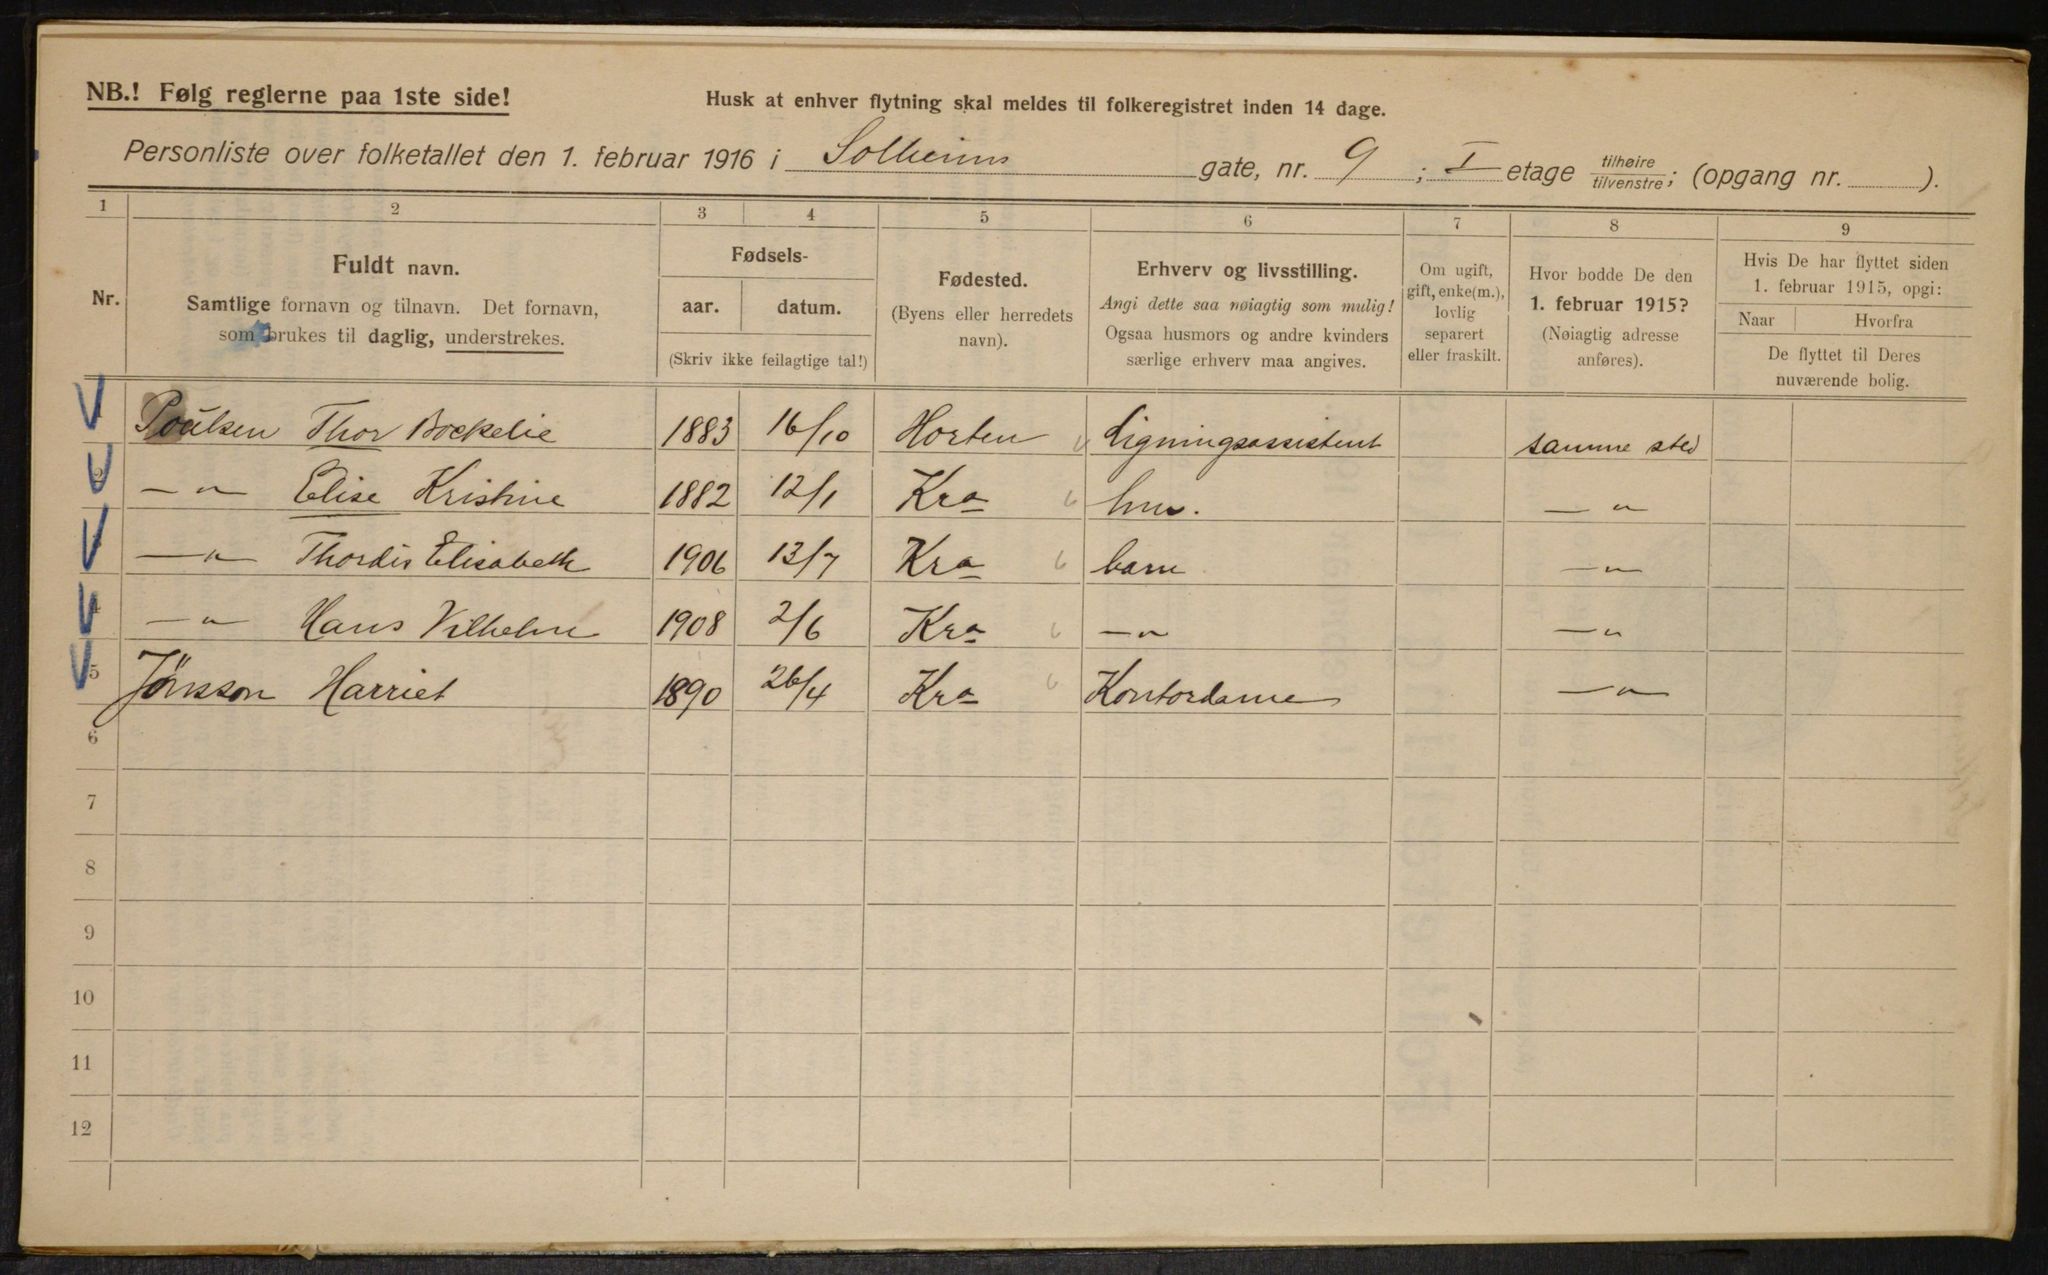 NB.! Følg reglerne paa 1ste side!
Husk at enhver flytning skal meldes til folkeregistret inden 14 dage.
Personliste over folketallet den 1. februar 1916 i Solheims gate, nr. 9 ; I etage tilhøire/tilvenstre; (opgang nr. ).
1 2 3 4 5 6 7 8 9
Nr.
Fuldt navn.
Samtlige fornavn og tilnavn. Det fornavn,
som brukes til daglig, understrekes.
Fødsels-
aar. datum.
(Skriv ikke feilagtige tal!)
Fødested.
(Byens eller herredets
navn).
Erhverv og livsstilling.
Angi dette saa nøiagtig som mulig!
Ogsaa husmors og andre kvinders
særlige erhverv maa angives.
Om ugift,
gift, enke(m.),
lovlig
separert
eller fraskilt.
Hvor bodde De den
1. februar 1915?
(Nøiagtig adresse
anføres).
Hvis De har flyttet siden
1. februar 1915, opgi:
Naar Hvorfra
De flyttet til Deres
nuværende bolig.
Poulsen Thor Boekelie 1883 16/10 Horten Ligningsassistent samme sted
2 — " — Elise Kristine 1882 12/1 Kra hus. — " —
— " — Thordis Elisabeth 1906 13/7 Kra barn — " —
4 — " — Hans Vilhelm 1908 2/6 Kra — " — — " —
5 Jönsson Harriet 1890 26/4 Kra Kontordame — " —
6
7
8
9
10
11
12